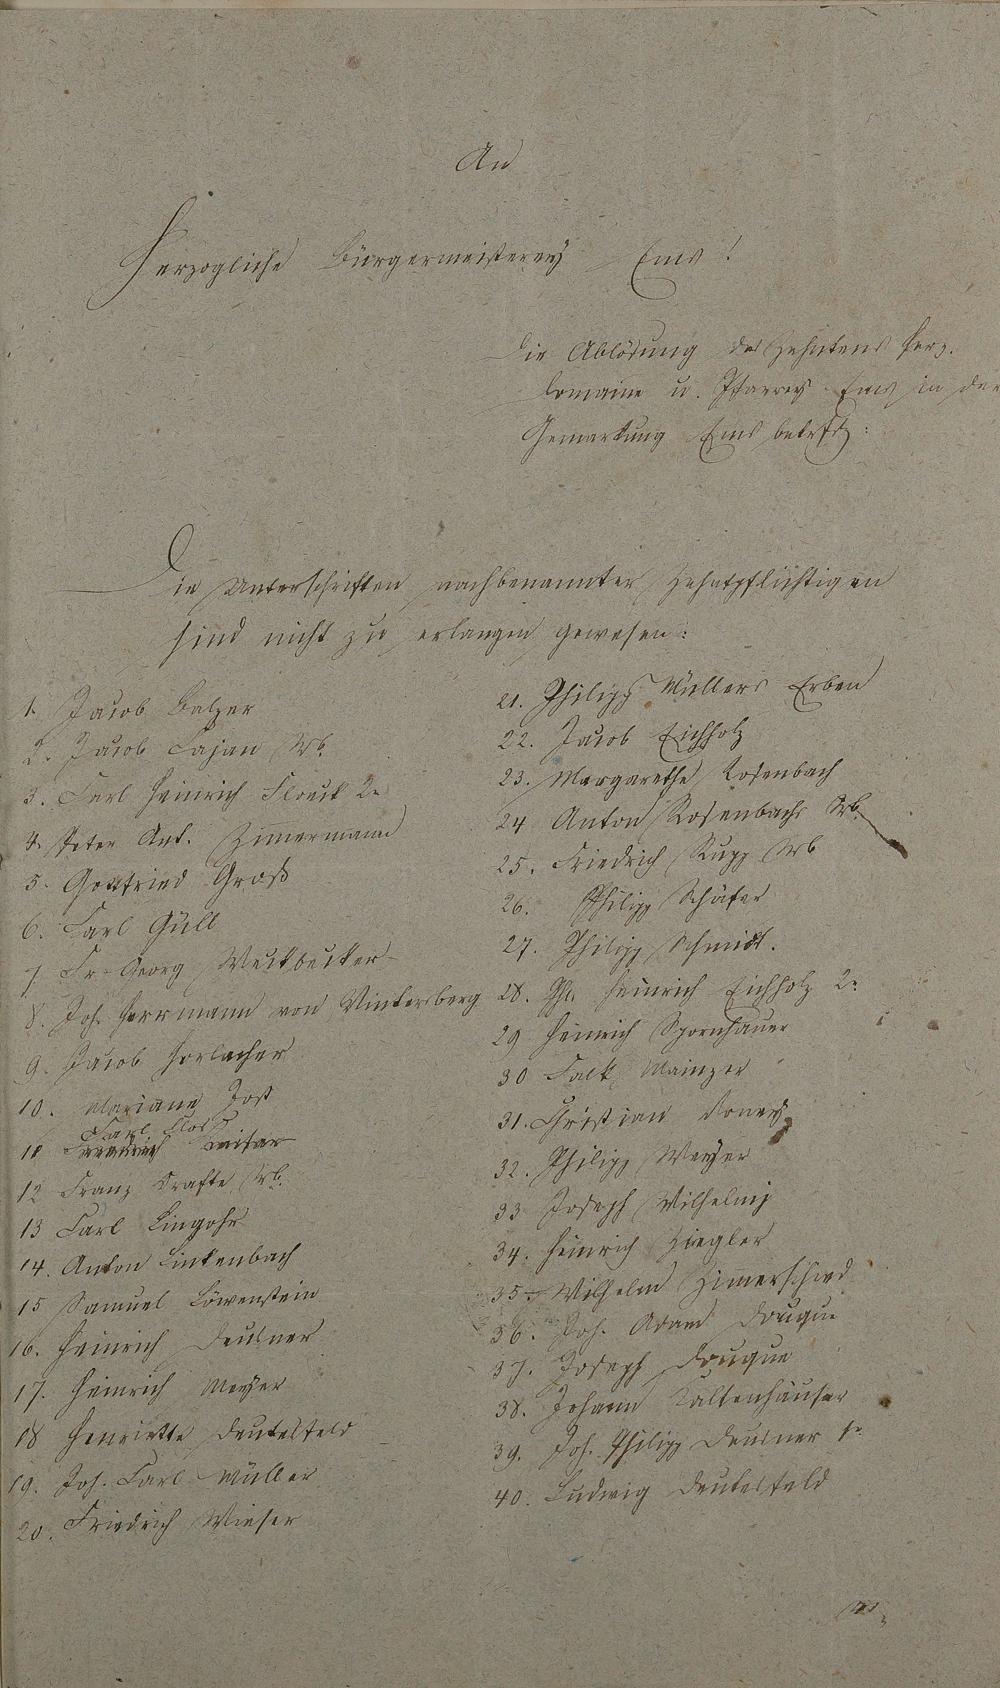 An
Herzogliche Bürgermeisterey Ems!
Die Ablösung des Zehntens herz.
Domaine u. Pfarrey Ems in der
Gemarkung Ems betrfd:
Die Unterschriften nachbenannter Zehntpflichtigen
sind nicht zu erlangen gewesen:
1. Jacob Balzer
2. Jacob Cajan Wb.
3. Carl Heinrich Flöck 2r
4. Peter Ant. Zimmermann
5. Gottfried Groß
6. Carl Güll
7 Fr. Georg Weckbecker
8. Joh. Herrmann von Wintersberg
9. Jacob Horlacher
10. Mariane Jost
Carl Clos
11 Friedrich Kaiser
12 Franz Krafte Wb.
13 Carl Lingohr
14. Anton Linkenbach
15 Samuel Löwenstein
16. Heinrich Deusner
17. Heinrich Meyer
18 Henriette Deutesfeld
19. Joh. Carl Müller
20. Friedrich Wieser
21. Philipp Müllers Erben
22. Jacob Eichholz
23. Margarethe Rosenbach
24 Anton Rosenbachs Wb.
25. Friedrich Rupp Wb
26. Philipp Schäfer
27. Philipp Schmidt.
28. Ph. Heinrich Eichholz 2r
29 Heinrich Spornhauer
30 Falk Mainzer
31. Christian
32. Philipp Weyer
33 Joseph Wilhelmj
34. Heinrich Ziegler
35 Wilhelm Zimerschied
36. Joh. Adam Douque
37. Joseph Douque
38. Johann Kaltenhäuser
39. Joh. Philipp Deusner 1r
40. Ludwig Deutesfeld